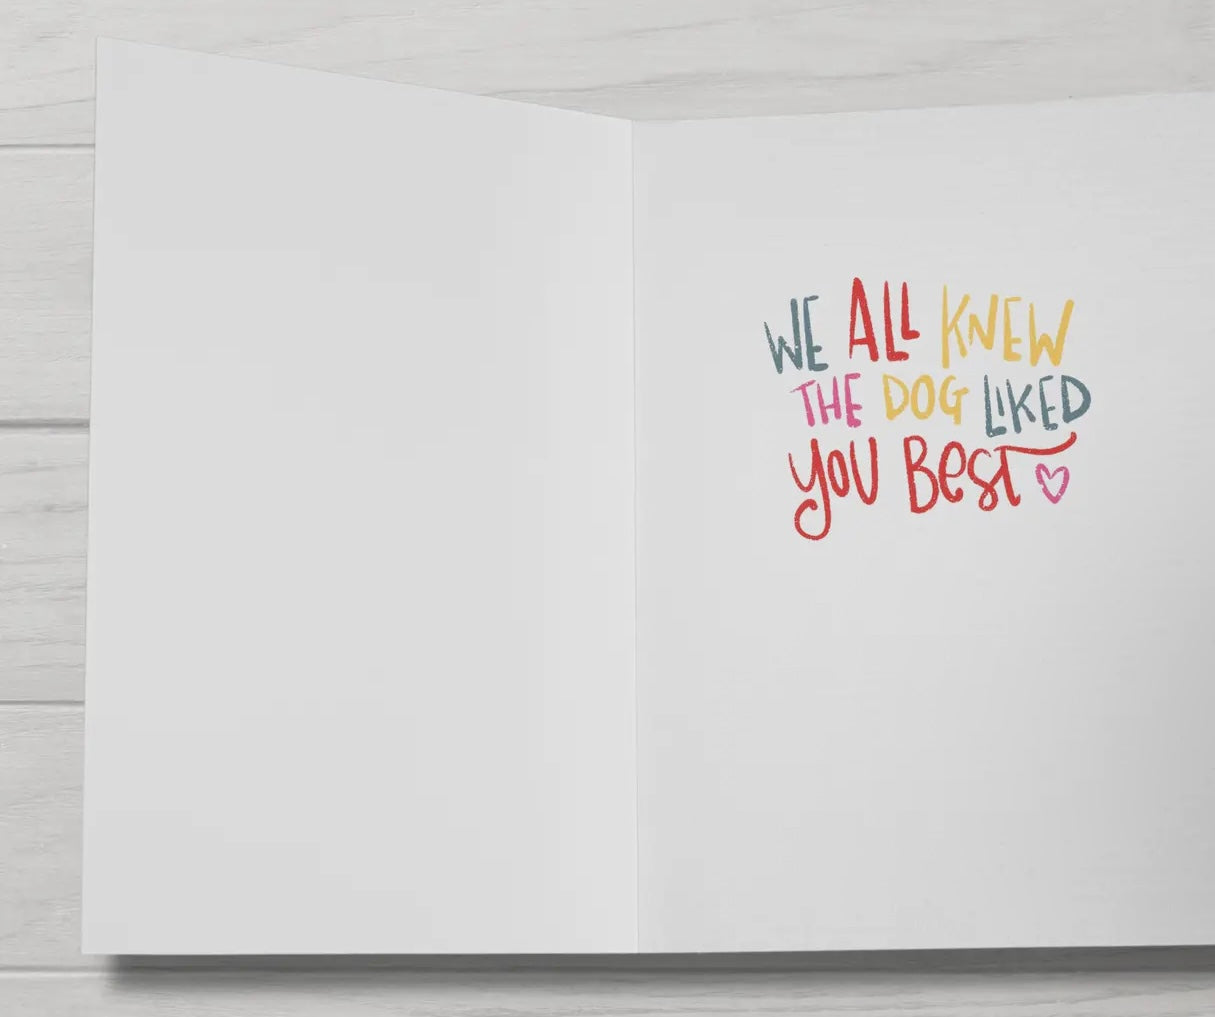 WE ALL KNEW
THE DOG LIKED
you BeST